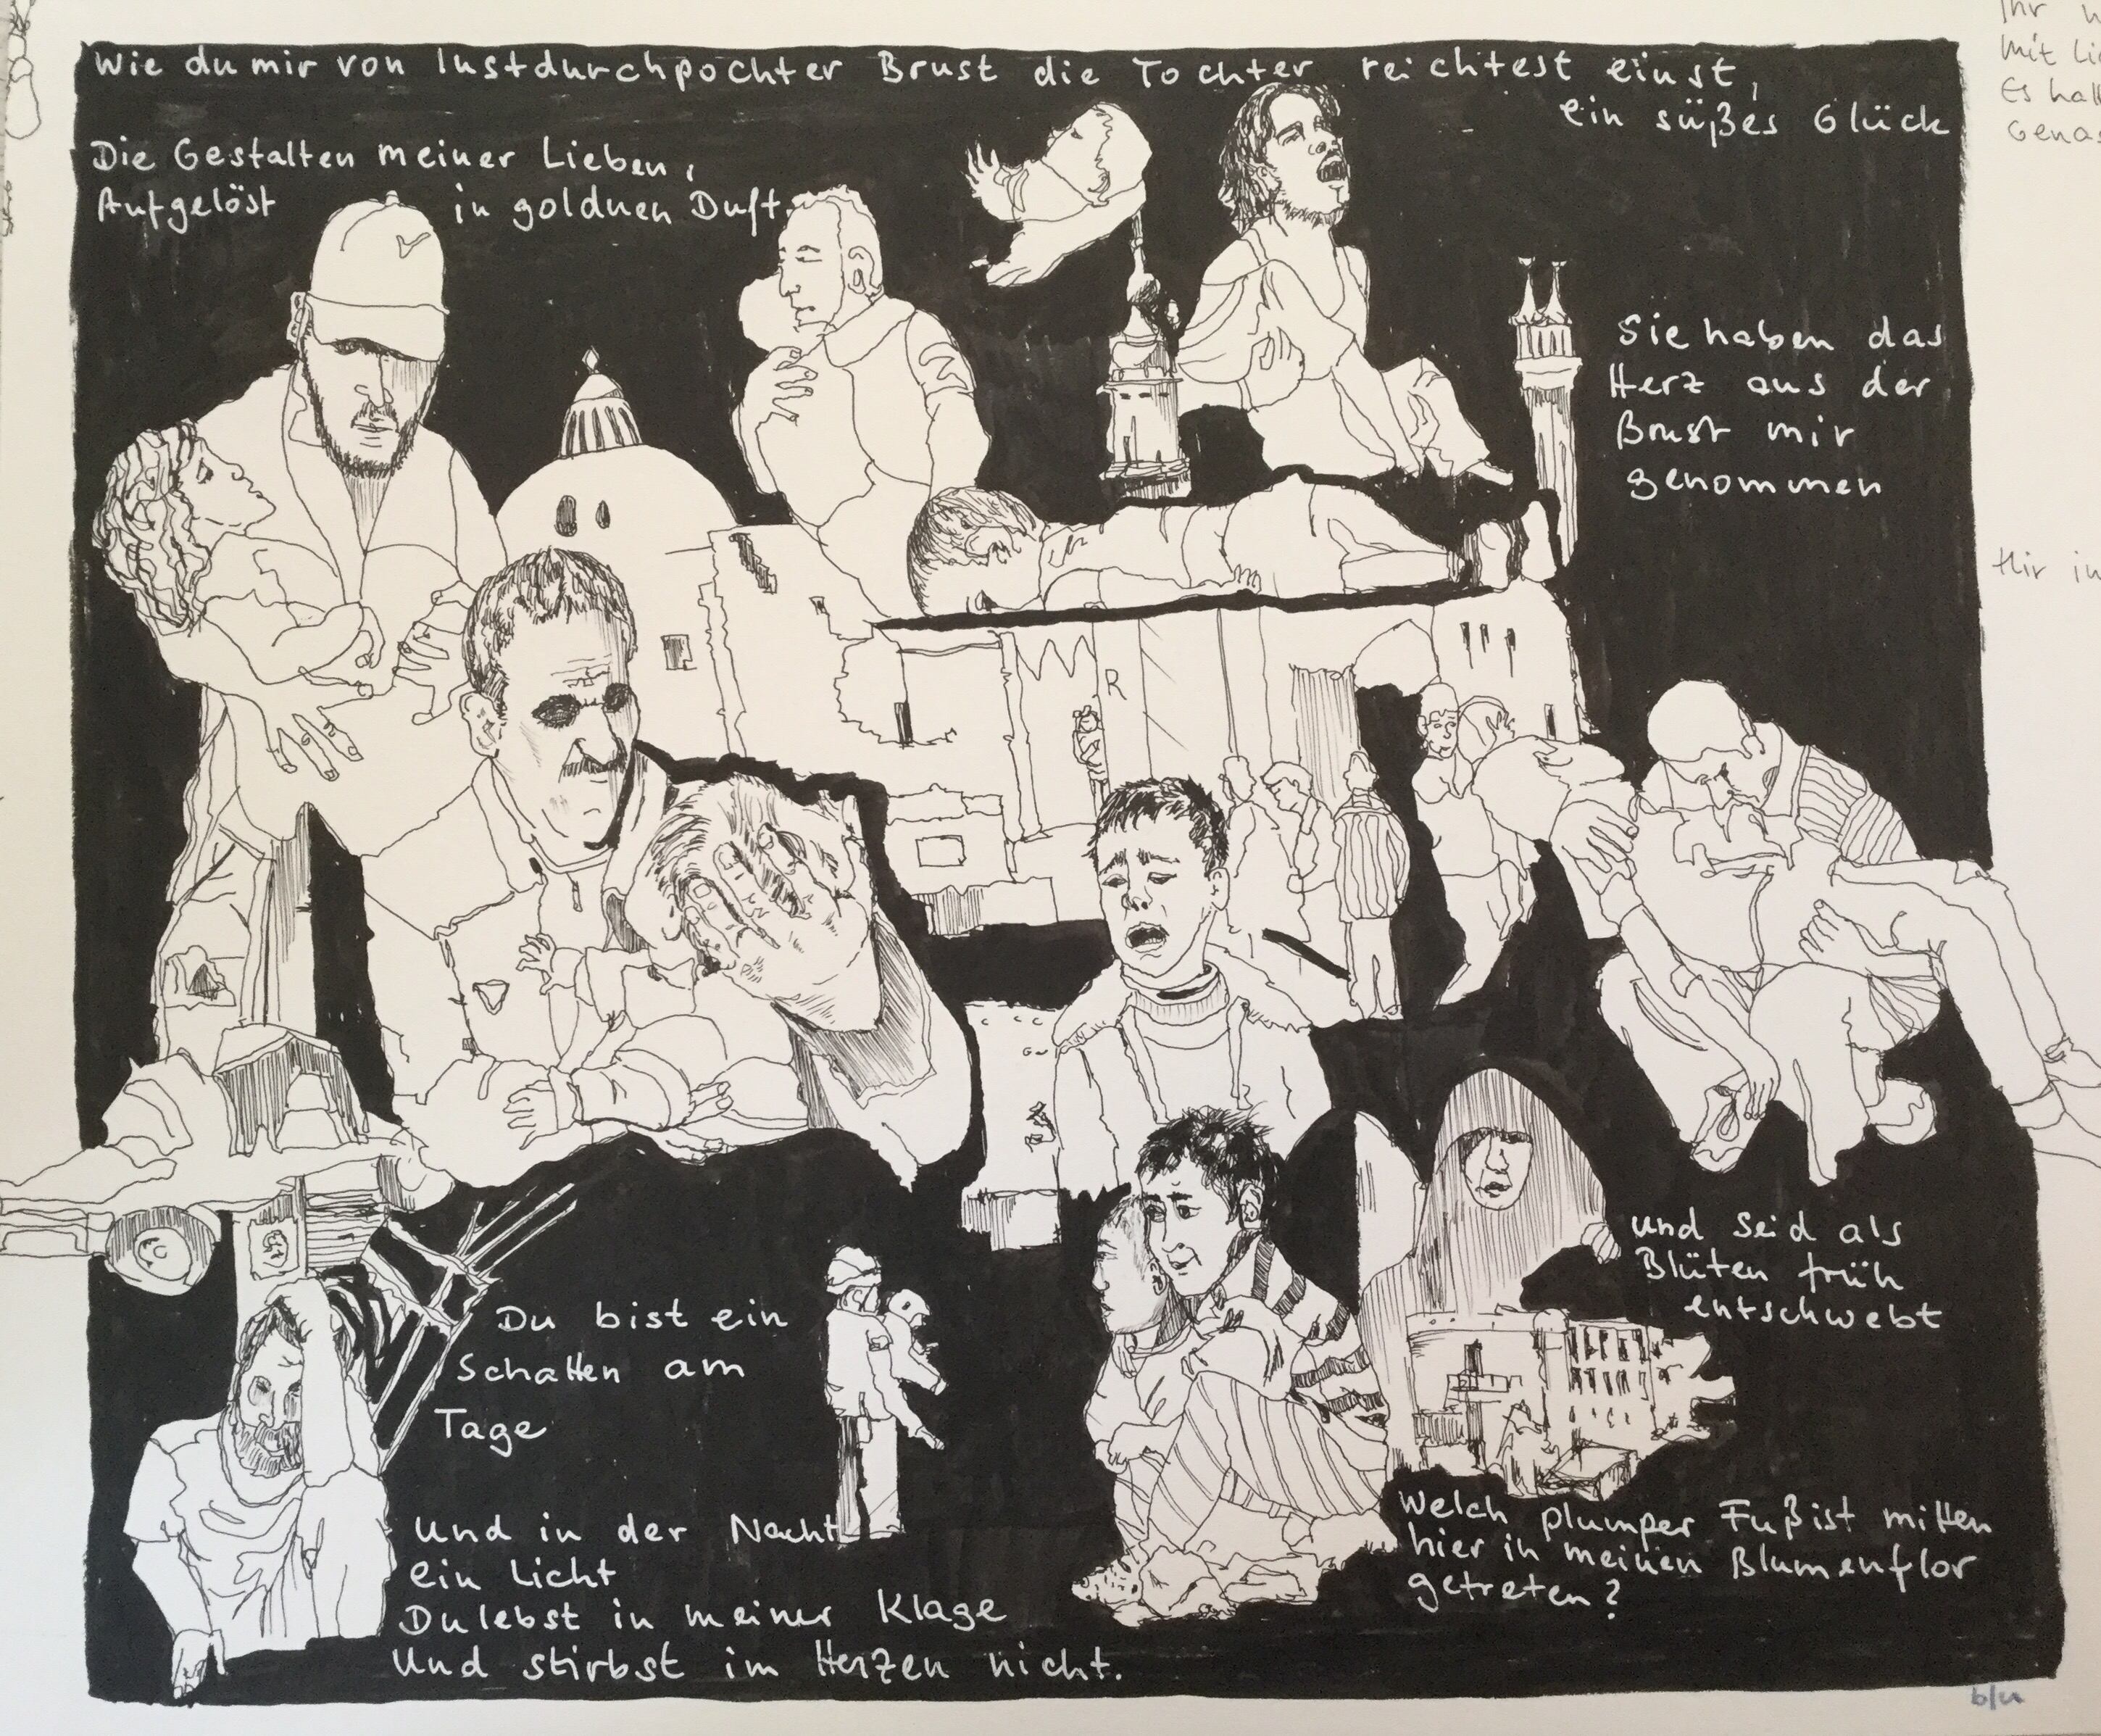 Wie du mir von lustdurchpochter Brust die Tochter reichtest einst,
ein süßes Glück
Die Gestalten meiner Lieben,
Aufgelöst in goldnen Duft.
Sie haben das
Herz aus der
Brust mir
genommen
R
und seid als
Blüten früh
entschwebt
Du bist ein
Schatten am
Tage
Und in der Nacht
ein Licht
Du lebst in meiner Klage
Und stirbst im Herzen nicht.
Welch plumper Fuß ist mitten
hier in meinen Blumenflor
getreten?
Ihr
mit
Es
Genas
Hir in
blu